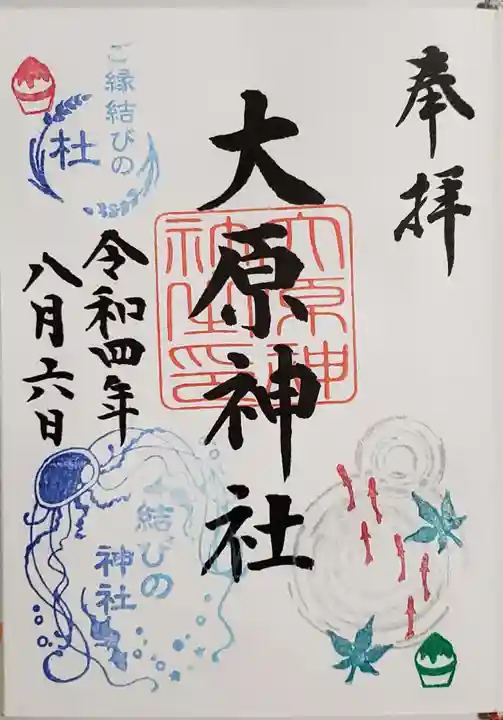 奉拝
大原神社
大原神
社之印
令和四年
八月六日
ご縁結びの
杜
結びの
神社